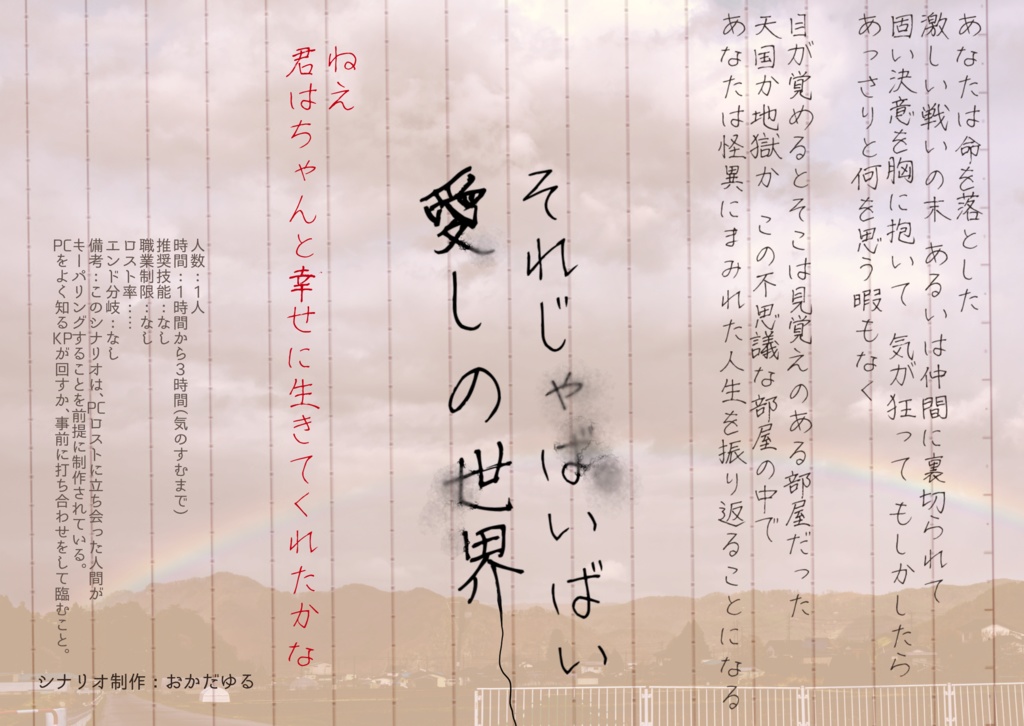 あなたは命を落とした
激しい戦いの末 あるいは仲間に裏切られて
固い決意を胸に抱いて 気が狂って もしかしたら
あっさりと何を思う暇もなく
目が覚めるとそこは見覚えのある部屋だった
天国か地獄か この不思議な部屋の中で
あなたは怪異にまみれた人生を振り返ることになる
それじゃばいばい
愛しの世界
ねえ
君はちゃんと幸せに生きてくれたかな
人数：1人
時間：1時間から3時間(気のすむまで)
推奨技能：なし
職業制限：なし
ロスト率：…
エンド分岐：なし
備考：このシナリオは、PCロストに立ち会った人間が
キーパリングすることを前提に制作されている。
PCをよく知るKPが回すか、事前に打ち合わせをして臨むこと。
シナリオ制作：おかだゆる